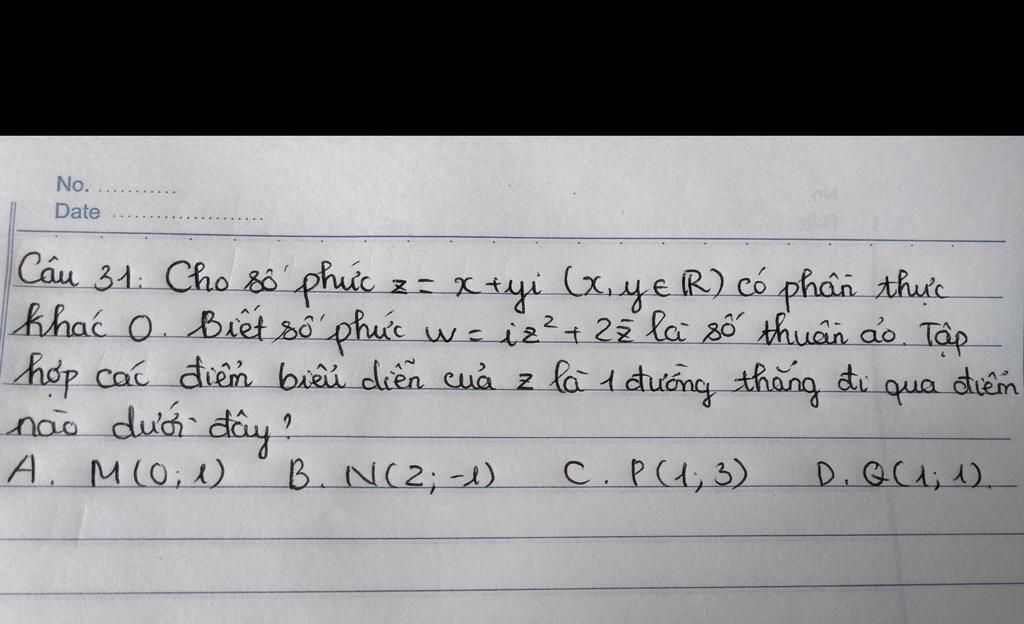 No. ...........
Date ......................
Câu 31: Cho số phức z = x+yi (x, y ∈ ℝ) có phần thực
khác 0. Biết số phức w = iz² + 2z̄ là số thuần ảo. Tập
hợp các điểm biểu diễn của z là 1 đường thẳng đi qua điểm
nào dưới đây?
A. M(0; 1) B. N(2; -1) C. P(1; 3) D. Q(1; 1).